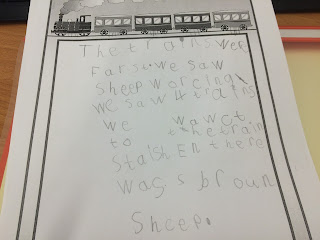 The trains wee
Far so we saw
sheep worcing
we saw 4 trains
we wawct
to the train
Staishen there
was s broun
Sheep.